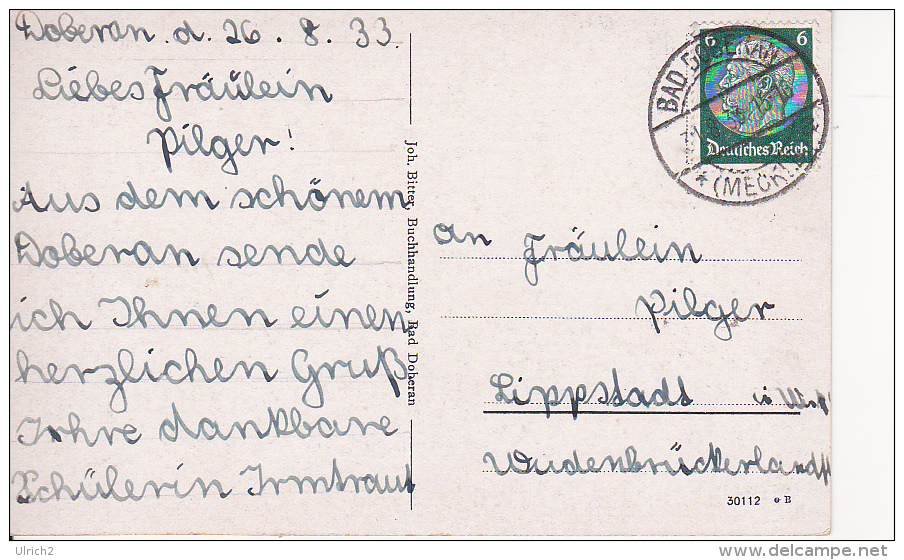 Doberan d. 26. 8. 33.
Liebes Fräulein
Pilger!
Aus dem schönem
Doberan sende
ich Ihnen einen
herzlichen Gruß
Ihre dankbare
Schülerin Irmtraut
Joh. Bitter, Buchhandlung, Bad Doberan
6 6
Deutsches Reich
BAD DOBERAN
* (MECKL
An Fräulein
Pilger
Lippstadt i. W.
30112 B
Ulrich2
www.delcampe.net